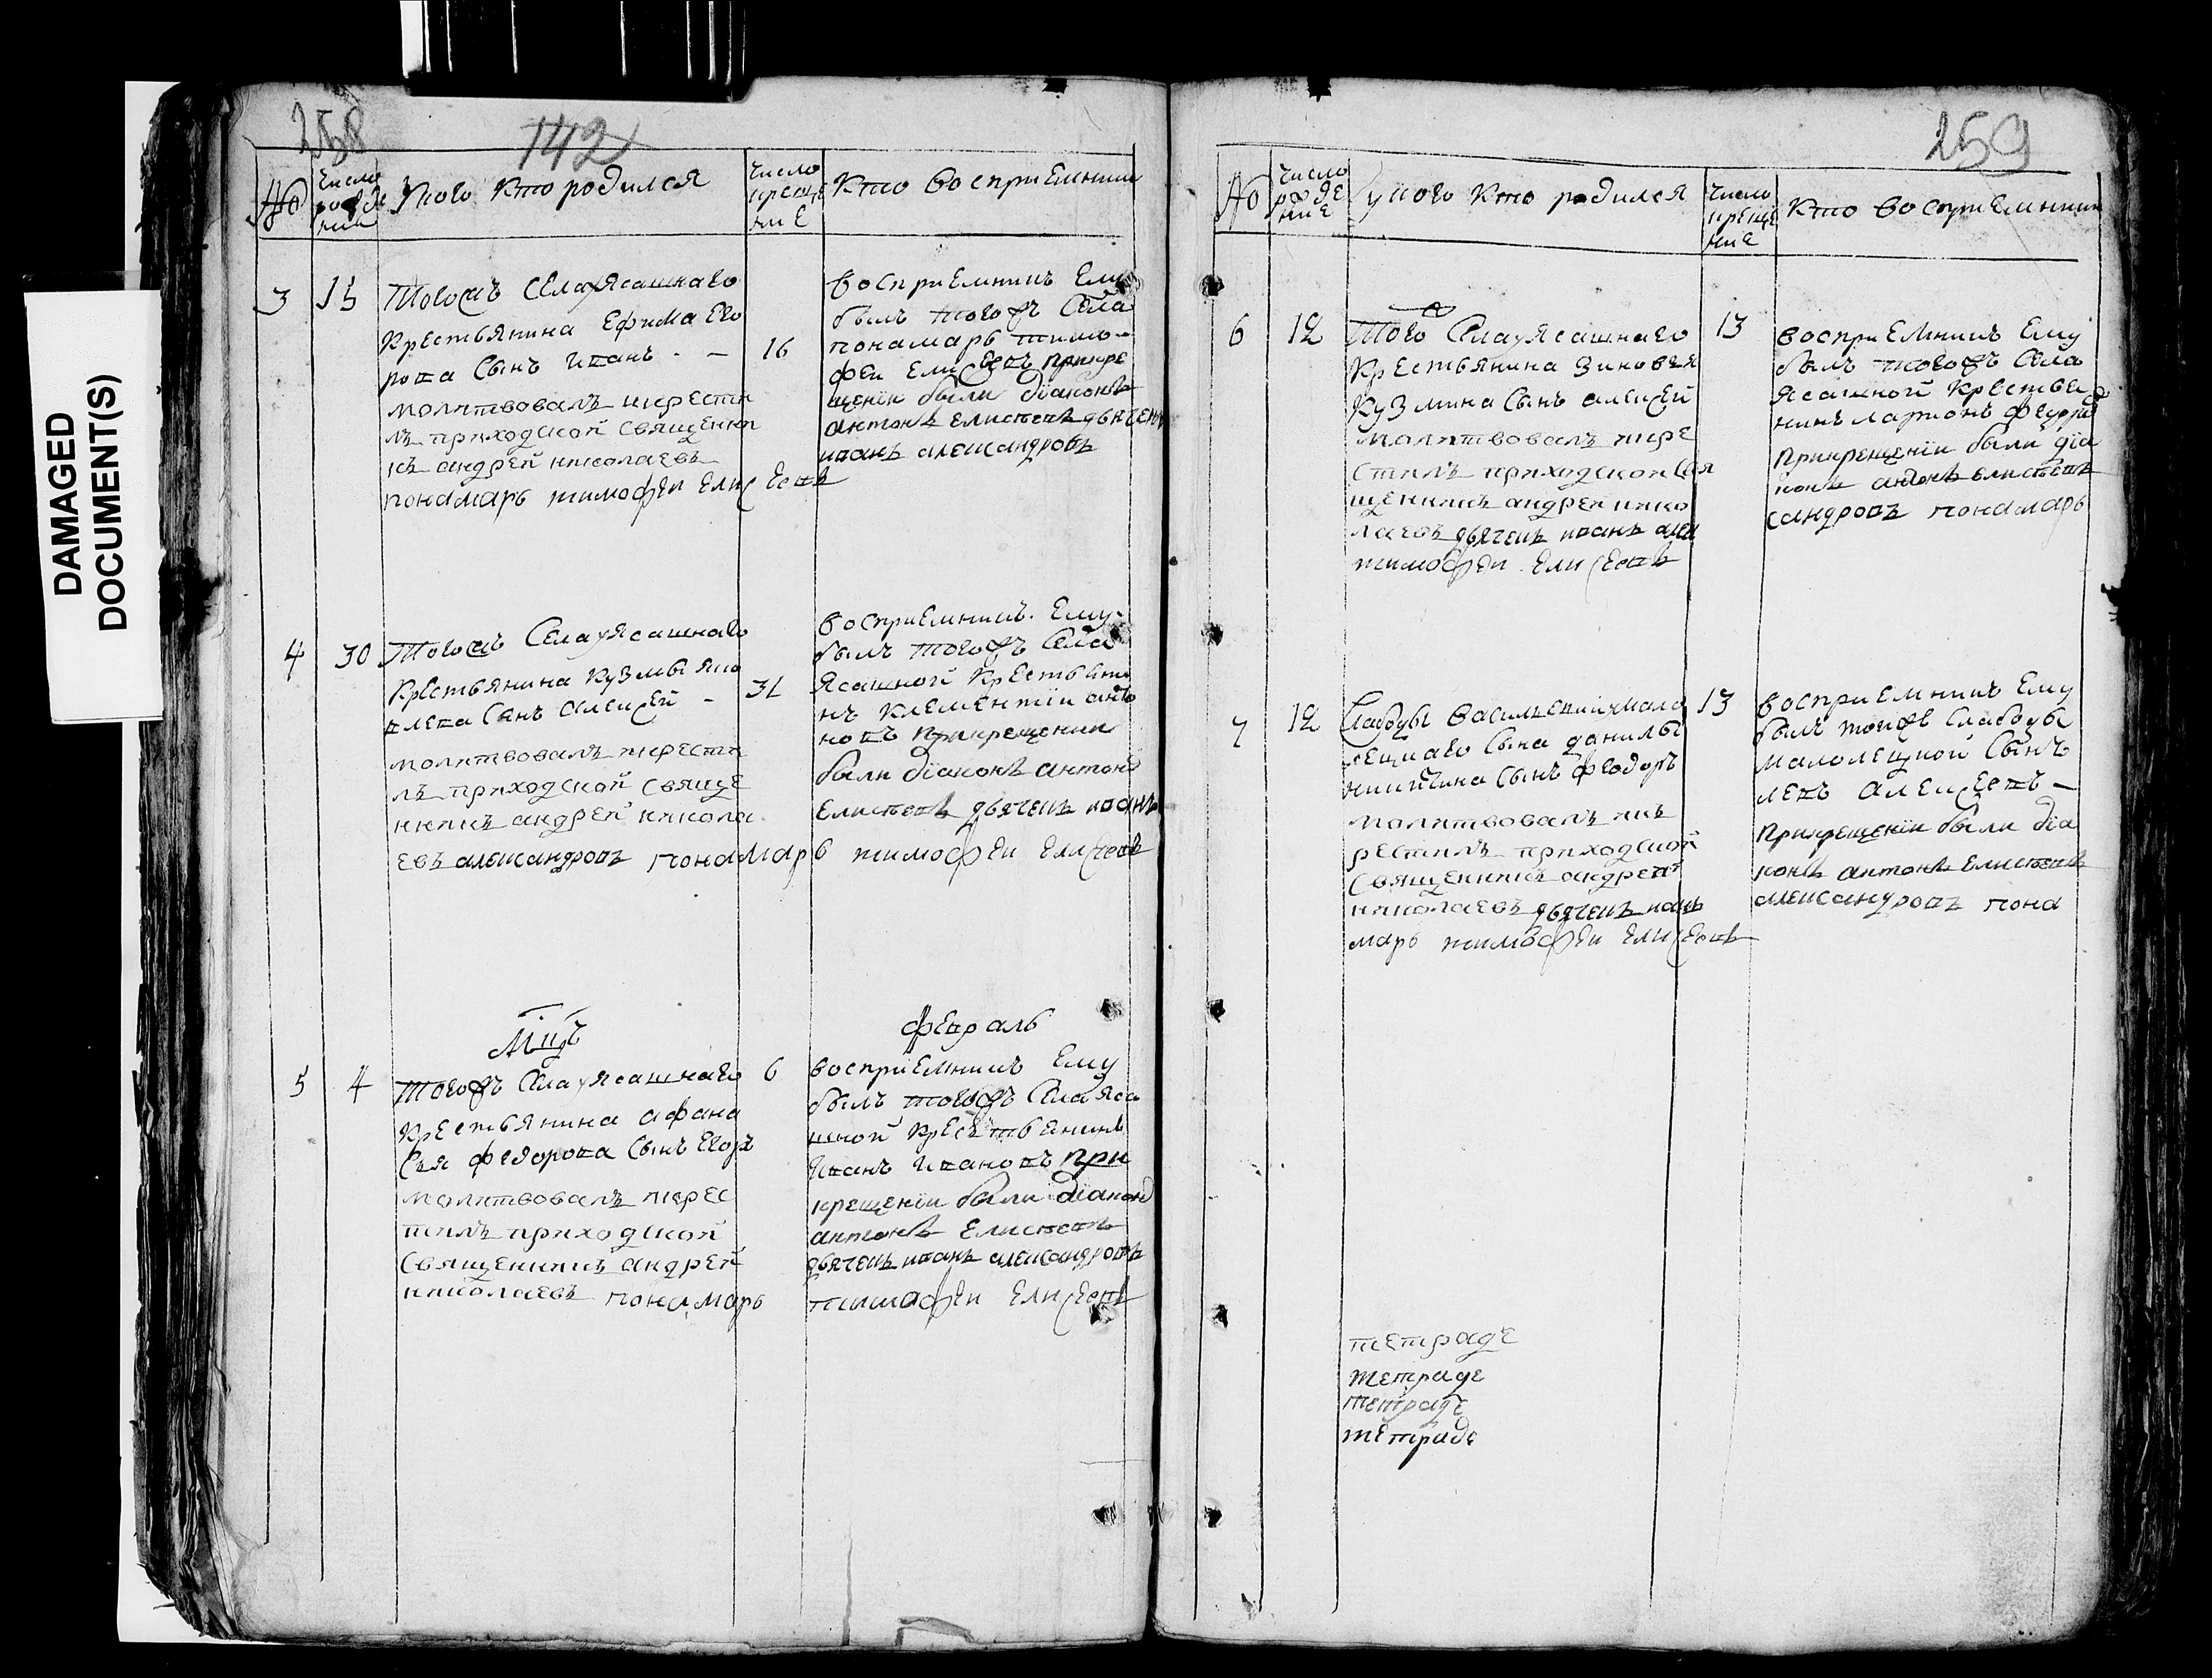 DAMAGED
DOCUMENT(S)
258
142
№
число рожде нии
У кого кто родился
число креще ние
Кто восприемники
3 15 Тогожъ села у ясашнаго
крестьянина ефима его
рова сынъ иванъ 16
молитвовалъ икрести
лъ приходской священни
къ андрей николаевъ
понамарь тимофеи елисеевъ
восприемникъ ему
былъ тогожъ села
понамарь тимо
феи елисеевъ прикре
щенiи были дiаконъ
антонъ елисеевъ дьячекъ
иванъ александровъ
4 30 Тогожъ села у ясашнаго
крестьянина кузмы яко
влева сынъ алексей 31
молитвовалъ икрести
лъ приходской свяще
нникъ андрей никола
евъ александровъ понамарь тимофеи елисеевъ
восприемникъ ему
былъ тогожъ села
ясашной крестьяни
нъ клементiи анто
новъ прикрещении
были дiаконъ антонъ
елисеевъ дьячекъ иванъ
Мцъ февраль
5 4 тогожъ села у ясашнаго 6
крестьянина афана
сья федорова сынъ егоръ
молитвовалъ икрес
тилъ приходской
священникъ андрей
николаевъ понамарь
восприемникъ ему
былъ тогожъ села яса
шной крестьенинъ
иванъ ивановъ при
крещенiи были дiаконъ
антонъ елисеевъ
дьячекъ иванъ александровъ
тимофеи елисеевъ
259
№
число рожде ние
у кого кто родился
число креще ние
кто восприемники
6 12 Того села у ясашнаго 13
крестьянина зиновея
кузмина сынъ алексей
молитвовалъ икре
стилъ приходской свя
щенникъ андрей нико
лаевъ дьячекъ иванъ алек
тимофеи елисеевъ
восприемникъ ему
былъ тогожъ села
ясашной крестьея
нинъ ларионъ
прикрещенiи были дiа
конъ антонъ елисеевъ
сандровъ понамарь
7 12 Слабоды 13
сына данилы
никитина сынъ феодоръ
молитвовалъ икъ
рестилъ приходской
священникъ андрей
николаевъ дьячекъ иванъ
марь тимофеи елисеевъ
восприемникъ ему
былъ тойже слабоды
малолецкой сынъ
алексеевъ
прикрещенiи были дiа
конъ антонъ елисеевъ
александровъ пона
тетраде
тетраде
тетраде
тетраде